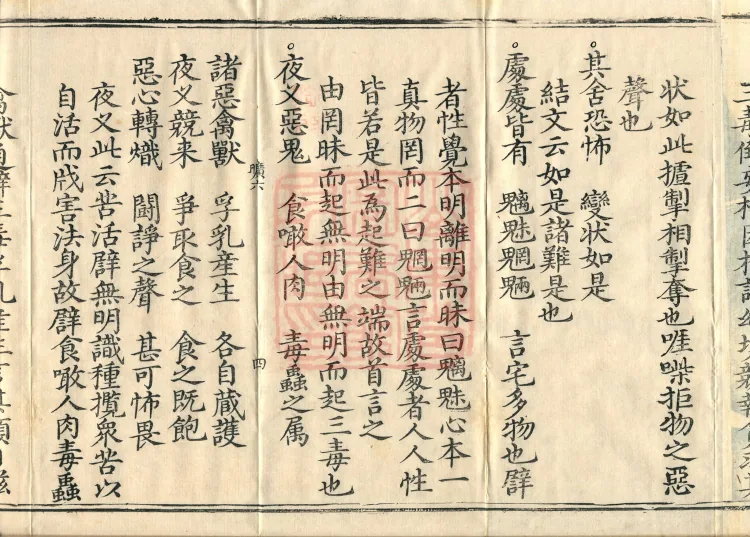 状如此摣掣相掣奪也啀喍拒物之惡
聲也
。其舍恐怖　變状如是
結文云如是諸難是也
。處處皆有　魑魅魍魎　言宅多物也譬
者性覺本明離明而昧曰魑魅心本一
真物罔而二曰魍魎言處處者人人性
皆若是此為起難之端故首言之
由罔昧而起無明由無明而起三毒也
。夜叉惡鬼　食噉人肉　毒蟲之属
曠六　四
諸惡禽獸　孚乳産生　各自藏護
夜叉競来　爭取食之　食之既飽
惡心轉熾　鬪諍之聲　甚可怖畏
夜叉此云苦活譬無明識種攬衆苦以
自活而戕害法身故譬食噉人肉毒蟲